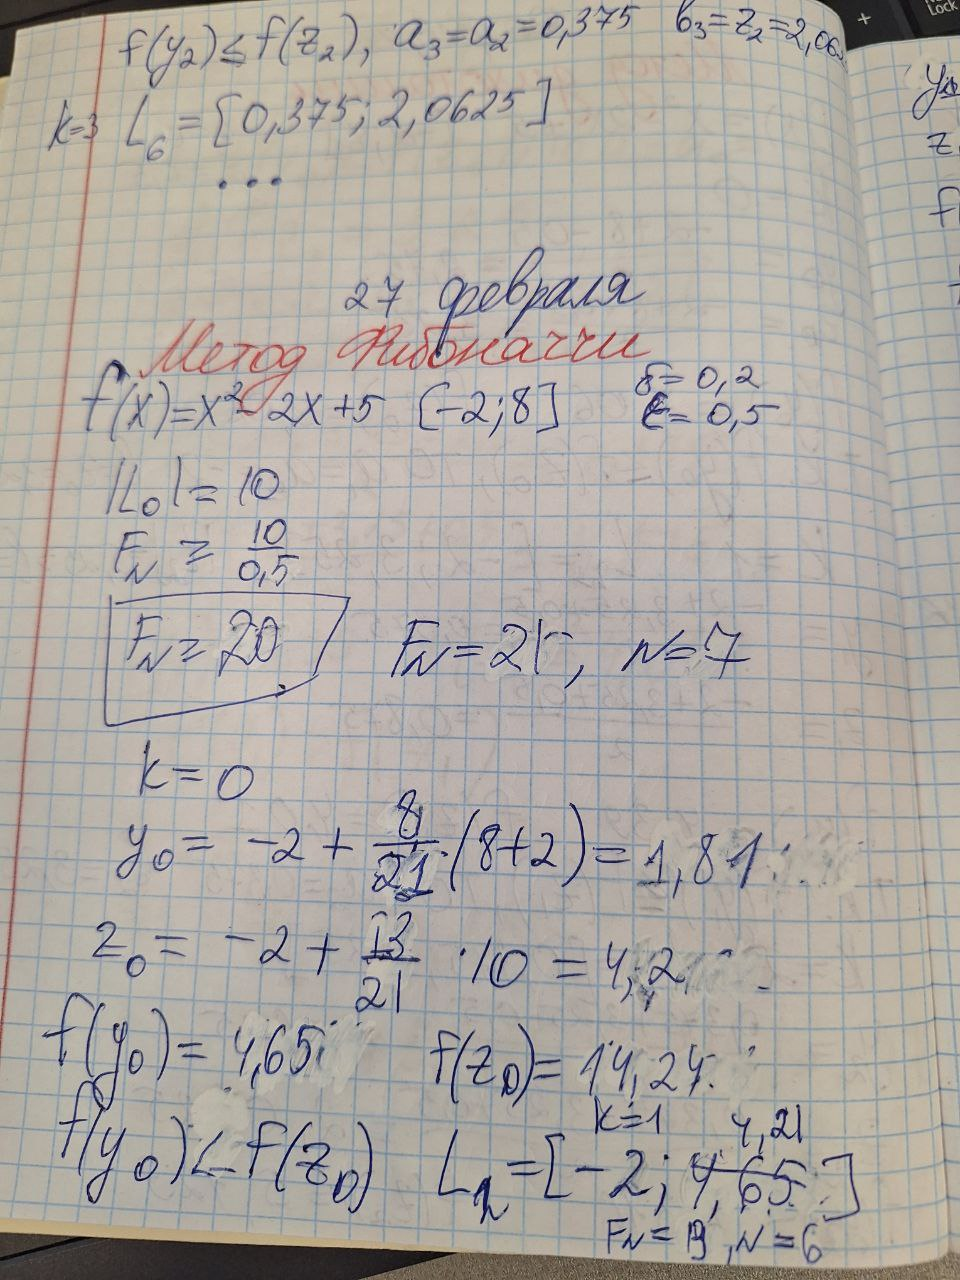 f(y₂) ≤ f(z₂), a₃=a₂=0,375 b₃=z₂=2,06
k=3 L₆ = [0,375; 2,0625]
...
27 февраля
Метод Фибоначчи
f(x)=x²-2x+5 [-2;8] δ=0,2
ε=0,5
|L₀|=10
F_N ≥ 10/0,5
F_N ≥ 20 F_N=21, N=7
k=0
y₀= -2 + 8/21 · (8+2) = 1,81
z₀= -2 + 13/21 · 10 = 4,2
f(y₀) = 4,65 f(z₀) = 14,24
k=1 4,21
f(y₀) < f(z₀) L₂=[-2; 4,65]
F_N=13, N=6